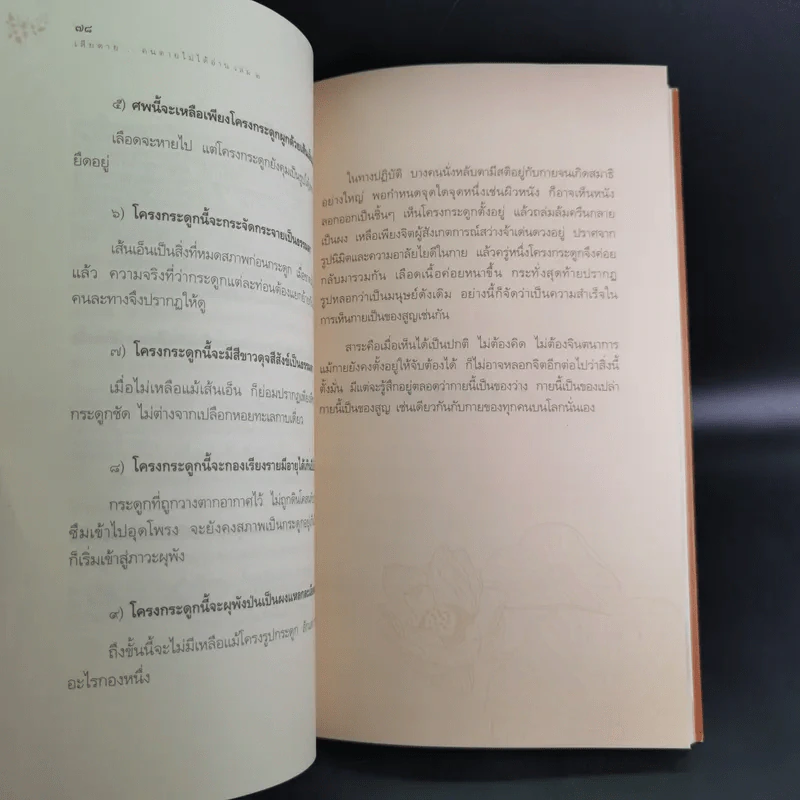 ๗๘
เสียดาย... คนตายไม่ได้อ่าน เล่ม ๒
๕) ศพนี้จะเหลือเพียงโครงกระดูกผูกด้วยเส้นเอ็น
เลือดจะหายไป แต่โครงกระดูกยังคุมเป็นรูป
ยึดอยู่
๖) โครงกระดูกนี้จะกระจัดกระจายเป็นธรรมดา
เส้นเอ็นเป็นสิ่งที่หมดสภาพก่อนกระดูก เมื่อ
แล้ว ความจริงที่ว่ากระดูกแต่ละท่อนต้องแยก
คนละทางจึงปรากฏให้ดู
๗) โครงกระดูกนี้จะมีสีขาวดุจสีสังข์เป็นธรรมดา
เมื่อไม่เหลือแม้เส้นเอ็น ก็ย่อมปรากฏ
กระดูกชัด ไม่ต่างจากเปลือกหอยทะเลกาบเดียว
๘) โครงกระดูกนี้จะกองเรียงรายมีอายุได้
กระดูกที่ถูกวางตากอากาศไว้ ไม่ถูกดิน
ซึมเข้าไปอุดโพรง จะยังคงสภาพเป็นกระดูก
ก็เริ่มเข้าสู่ภาวะผุพัง
๙) โครงกระดูกนี้จะผุพังป่นเป็นผงแหลก
ถึงขั้นนี้จะไม่มีเหลือแม้โครงรูปกระดูก
อะไรกองหนึ่ง
ในทางปฏิบัติ บางคนนั่งหลับตามีสติอยู่กับกายจนเกิดสมาธิ
อย่างใหญ่ พอกำหนดจุดใดจุดหนึ่งเช่นผิวหนัง ก็อาจเห็นหนัง
ลอกออกเป็นชิ้นๆ เห็นโครงกระดูกตั้งอยู่ แล้วถล่มล้มครืนกลาย
เป็นผง เหลือเพียงจิตผู้สังเกตการณ์สว่างจ้าเด่นดวงอยู่ ปราศจาก
รูปนิมิตและความอาลัยไยดีในกาย แล้วครู่หนึ่งโครงกระดูกจึงค่อย
กลับมารวมกัน เลือดเนื้อค่อยหนาขึ้น กระทั่งสุดท้ายปรากฏ
รูปหลอกว่าเป็นมนุษย์ดังเดิม อย่างนี้ก็จัดว่าเป็นความสำเร็จใน
การเห็นกายเป็นของสูญเช่นกัน
สาระคือเมื่อเห็นได้เป็นปกติ ไม่ต้องคิด ไม่ต้องจินตนาการ
แม้กายยังคงตั้งอยู่ให้จับต้องได้ ก็ไม่อาจหลอกจิตอีกต่อไปว่าสิ่งนี้
ตั้งมั่น มีแต่จะรู้สึกอยู่ตลอดว่ากายนี้เป็นของว่าง กายนี้เป็นของเปล่า
กายนี้เป็นของสูญ เช่นเดียวกันกับกายของทุกคนบนโลกนั่นเอง